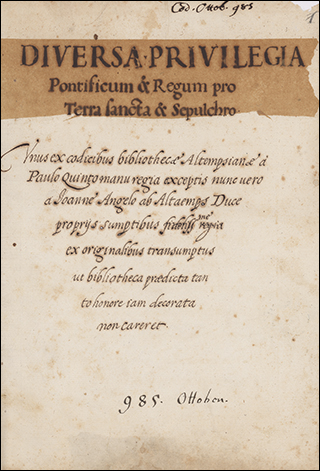 Cod. Ottob. 985
1
DIVERSA·PRIVILEGIA
Pontificum & Regum pro
Terra sancta & Sepulchro.
Vnus ex codicibus bibliothecæ Altempsianæ à
Paulo Quinto manu regia exceptis nunc vero
a Ioanne Angelo ab Altaemps Duce
proprijs sumptibus
ex originalibus transumptus
ut bibliotheca prædicta tan
to honore iam decorata
non careret.
985. Ottobon.